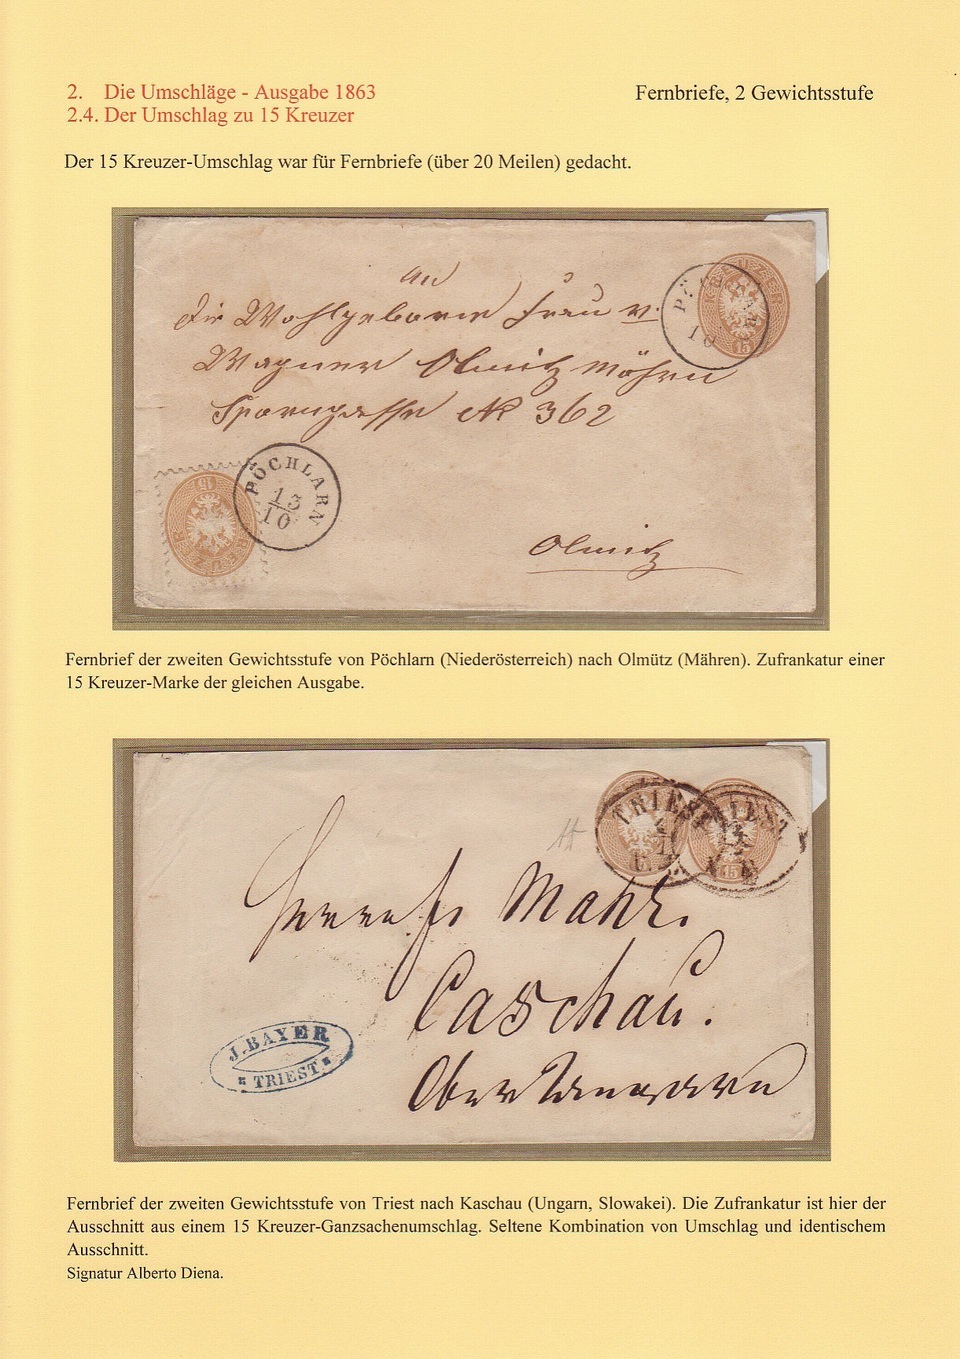 2. Die Umschläge - Ausgabe 1863
Fernbriefe, 2 Gewichtsstufe
2.4. Der Umschlag zu 15 Kreuzer
Der 15 Kreuzer-Umschlag war für Fernbriefe (über 20 Meilen) gedacht.
An
die Wohlgeborne Frau v:
Wagner Olmitz Mähren
No 362
PÖCHLARN
10
15
PÖCHLARN
13
10
15 KREUZER
Olmitz
Fernbrief der zweiten Gewichtsstufe von Pöchlarn (Niederösterreich) nach Olmütz (Mähren). Zufrankatur einer
15 Kreuzer-Marke der gleichen Ausgabe.
TRIEST
TRIEST
15
Mahr.
Caschau.
Ober Ungarn
J. BAYER
TRIEST
Fernbrief der zweiten Gewichtsstufe von Triest nach Kaschau (Ungarn, Slowakei). Die Zufrankatur ist hier der
Ausschnitt aus einem 15 Kreuzer-Ganzsachenumschlag. Seltene Kombination von Umschlag und identischem
Ausschnitt.
Signatur Alberto Diena.